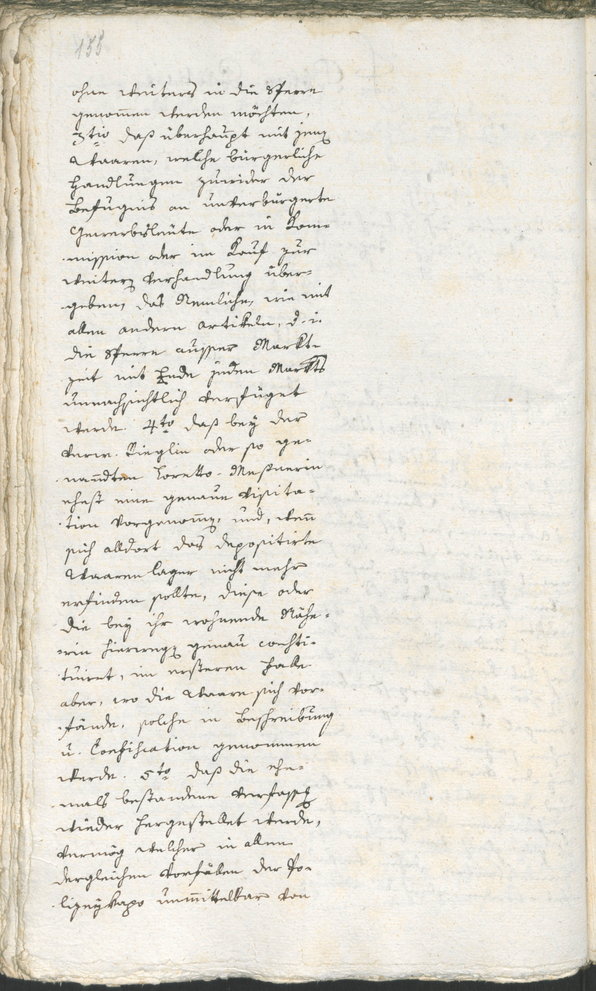 155
ohne weiters in die Sperre
genommen werden möchten,
3tio daß überhaupt mit jenen
Waaren, welche bürgerliche
Handlungen zuwider der
Befugnis an unverbürgerte
Gewerbsleute oder in Kom-
-mission oder im Kauf zur
weitern Verhandlung über-
-geben, das Nemliche, wie mit
allen andern Artikeln, d. i.
die Sperre ausser Markt-
zeit mit Ende jeden Markts
unnachsichtlich verfüget
werde. 4to daß bey der
verw. Rieglin oder so ge-
-nandten Loretto-Meßnerin
ehest eine genaue Visita-
-tion vorgenommen, und, wenn
sich alldort das depositirte
Waarenlager nicht mehr
erfinden sollte, diese oder
die bey ihr wohnende Nähe-
-rin hierwegen genau consti-
tuiret, im ersteren Falle
aber, wo die Waare sich vor-
-fände, solche in Beschreibung
u. Confiscation genommen
werde. 5to daß die ehe-
-mals bestandene Verfassung
wieder hergestellet werde,
vermög welcher in allen
dergleichen Vorfällen der Po-
-lizeykapo unmittelbar von